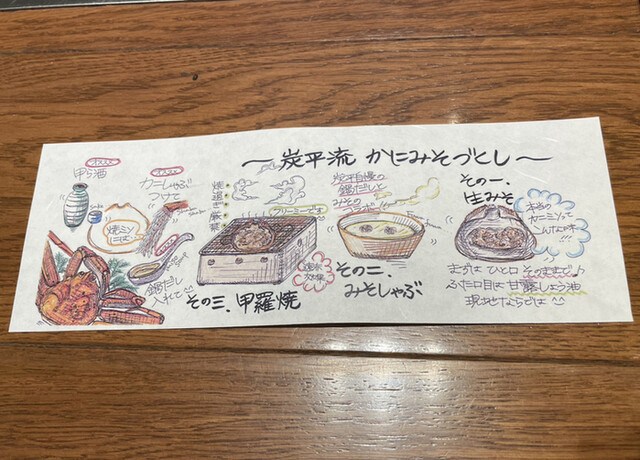 〜炭平流 かにみそづくし〜
その一、
生みそ
本当の
カニミソって
こんなに味!!
まずは ひと口 そのままで♪
ふた口目は 甘露しょう油
現地ならでは
炭平自慢の
鍋だしと
みその
その二、
みそしゃぶ
焼
過
ぎ
厳
禁
クリーミーです
その三、甲羅焼
オススメ
カニしゃぶ
つけて
鍋だし
入れて
オススメ
甲ら酒
焼ミソ
には